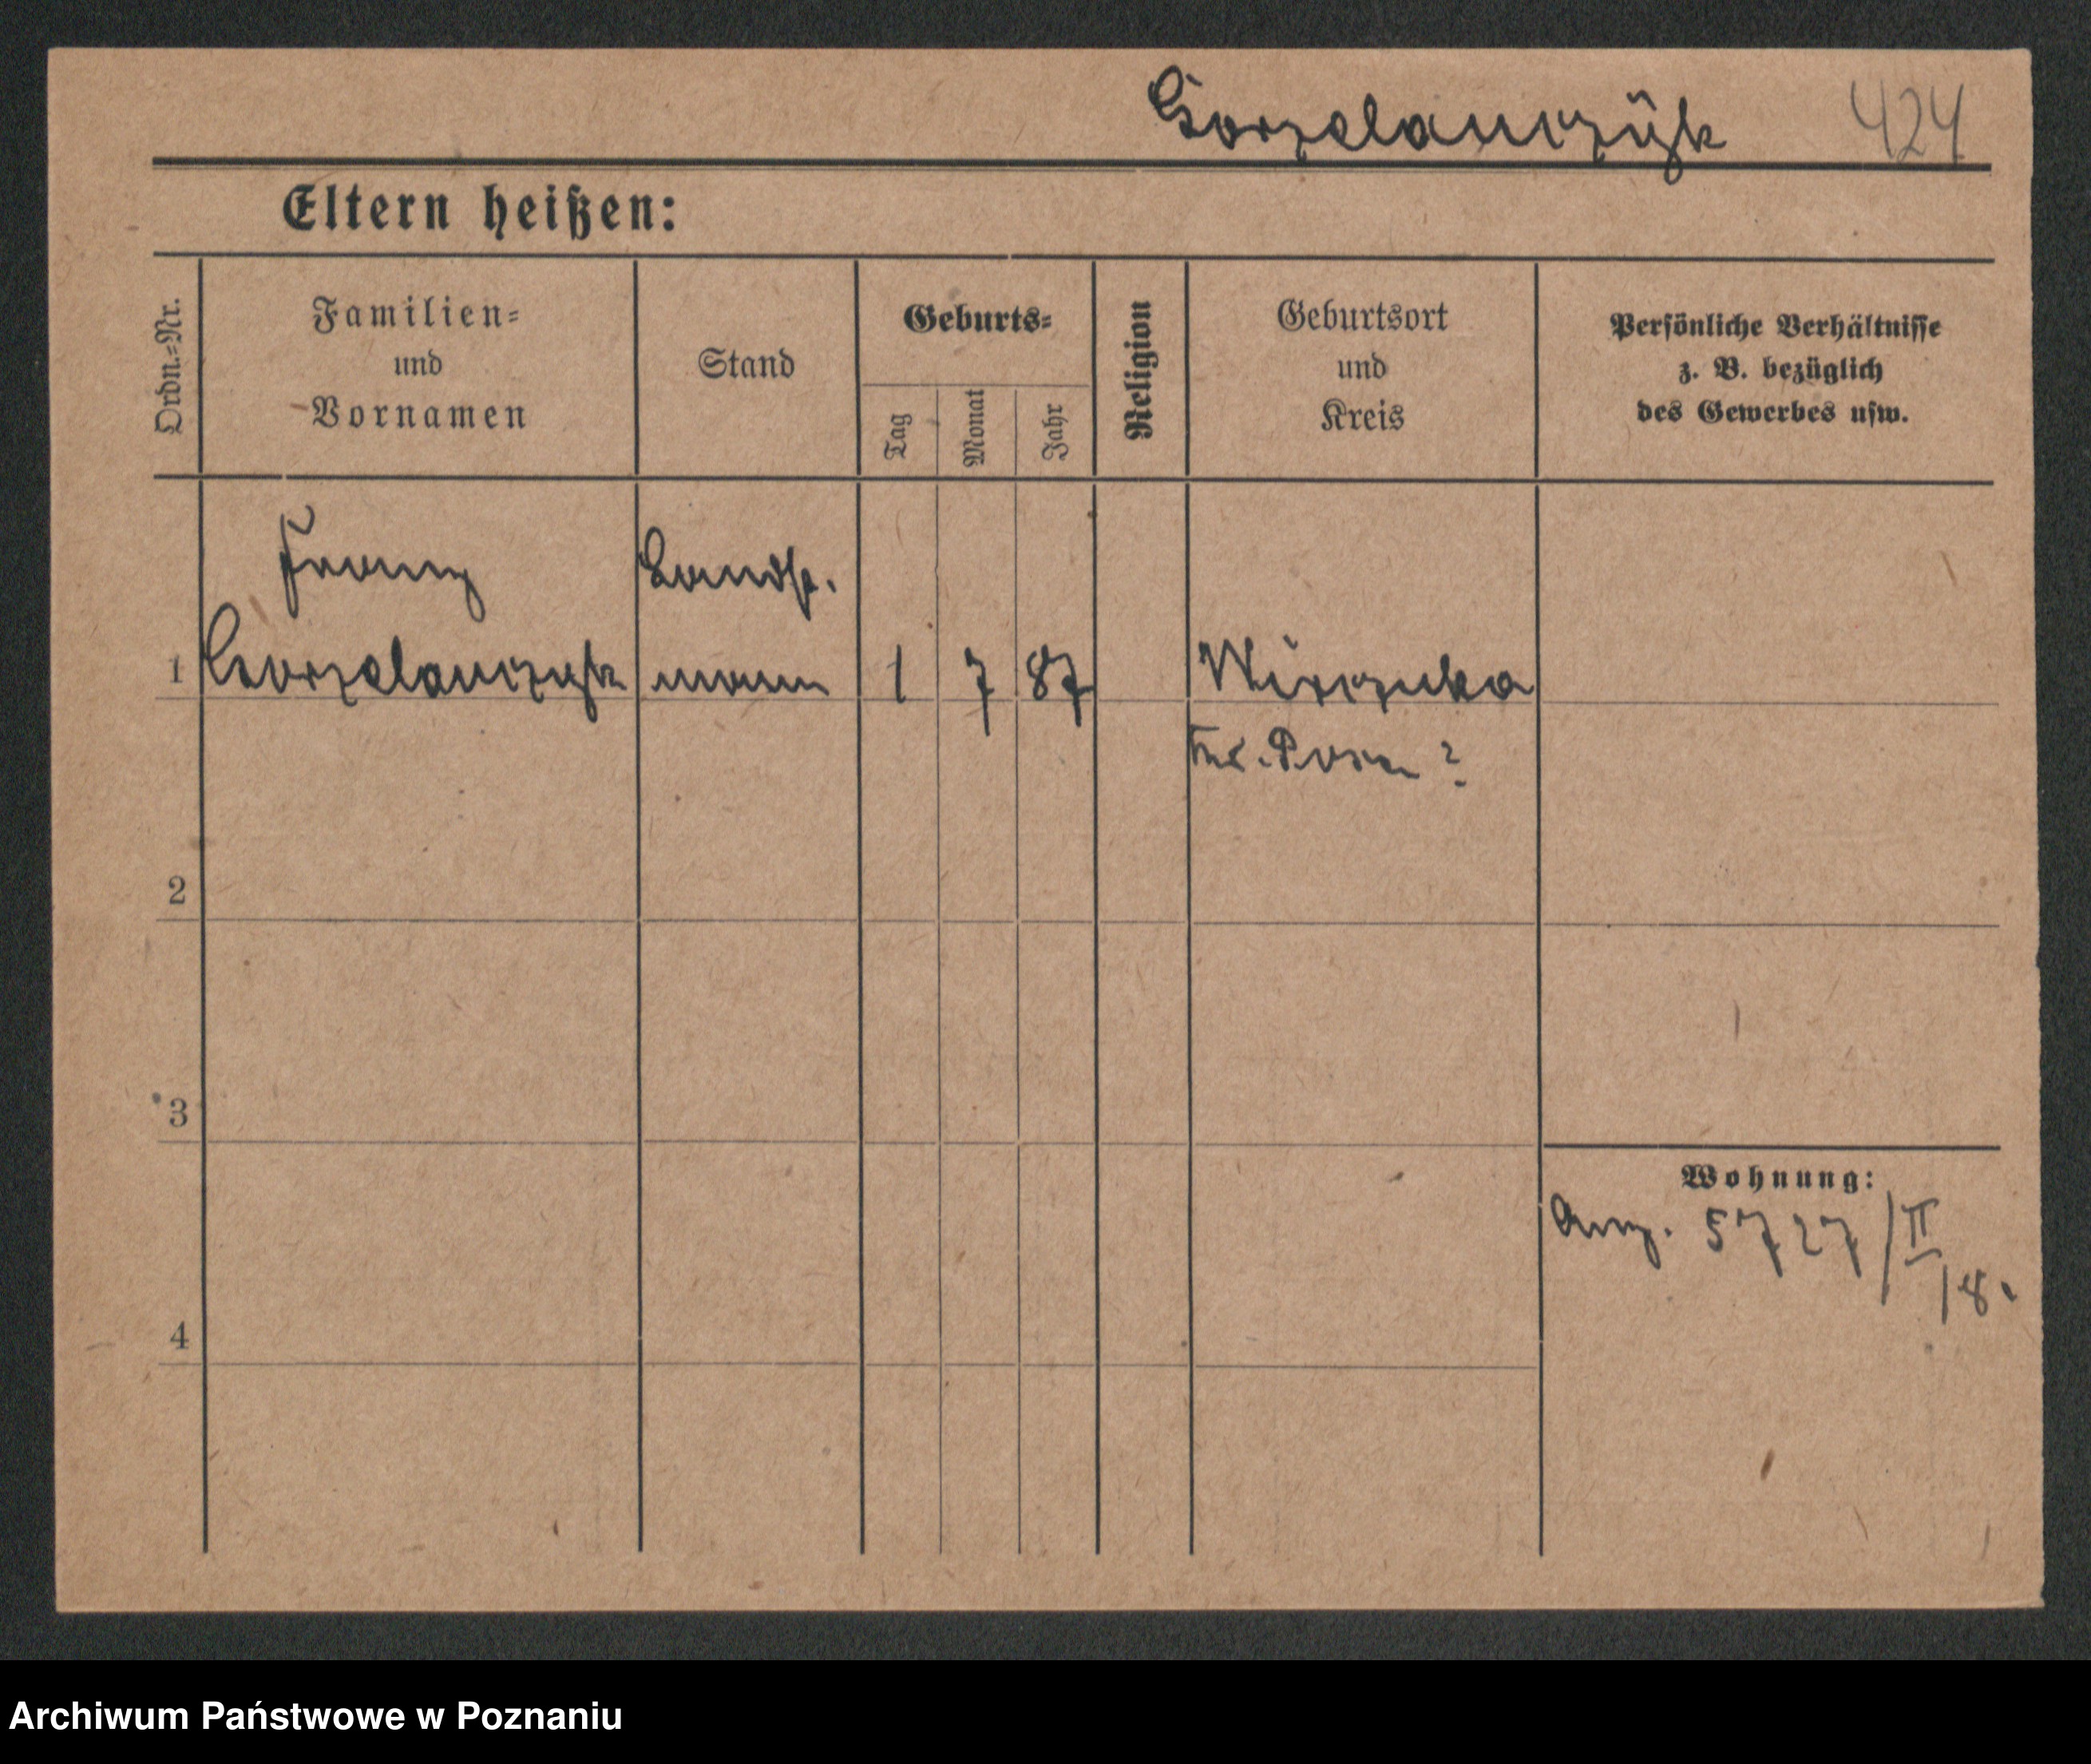 Gorzelanczÿk 424
Eltern heißen:
Ordn.-Nr.
Familien-
und
Vornamen
Stand
Geburts-
Tag
Monat
Jahr
Religion
Geburtsort
und
Kreis
Persönliche Verhältnisse
z. B. bezüglich
des Gewerbes usw.
Franz Landst.
1 Gorzelanczyk mann 1 7 87 Wirczuka
Posen ?
2
3
Wohnung:
Anz. 5727/II
/8.
4
Archiwum Państwowe w Poznaniu